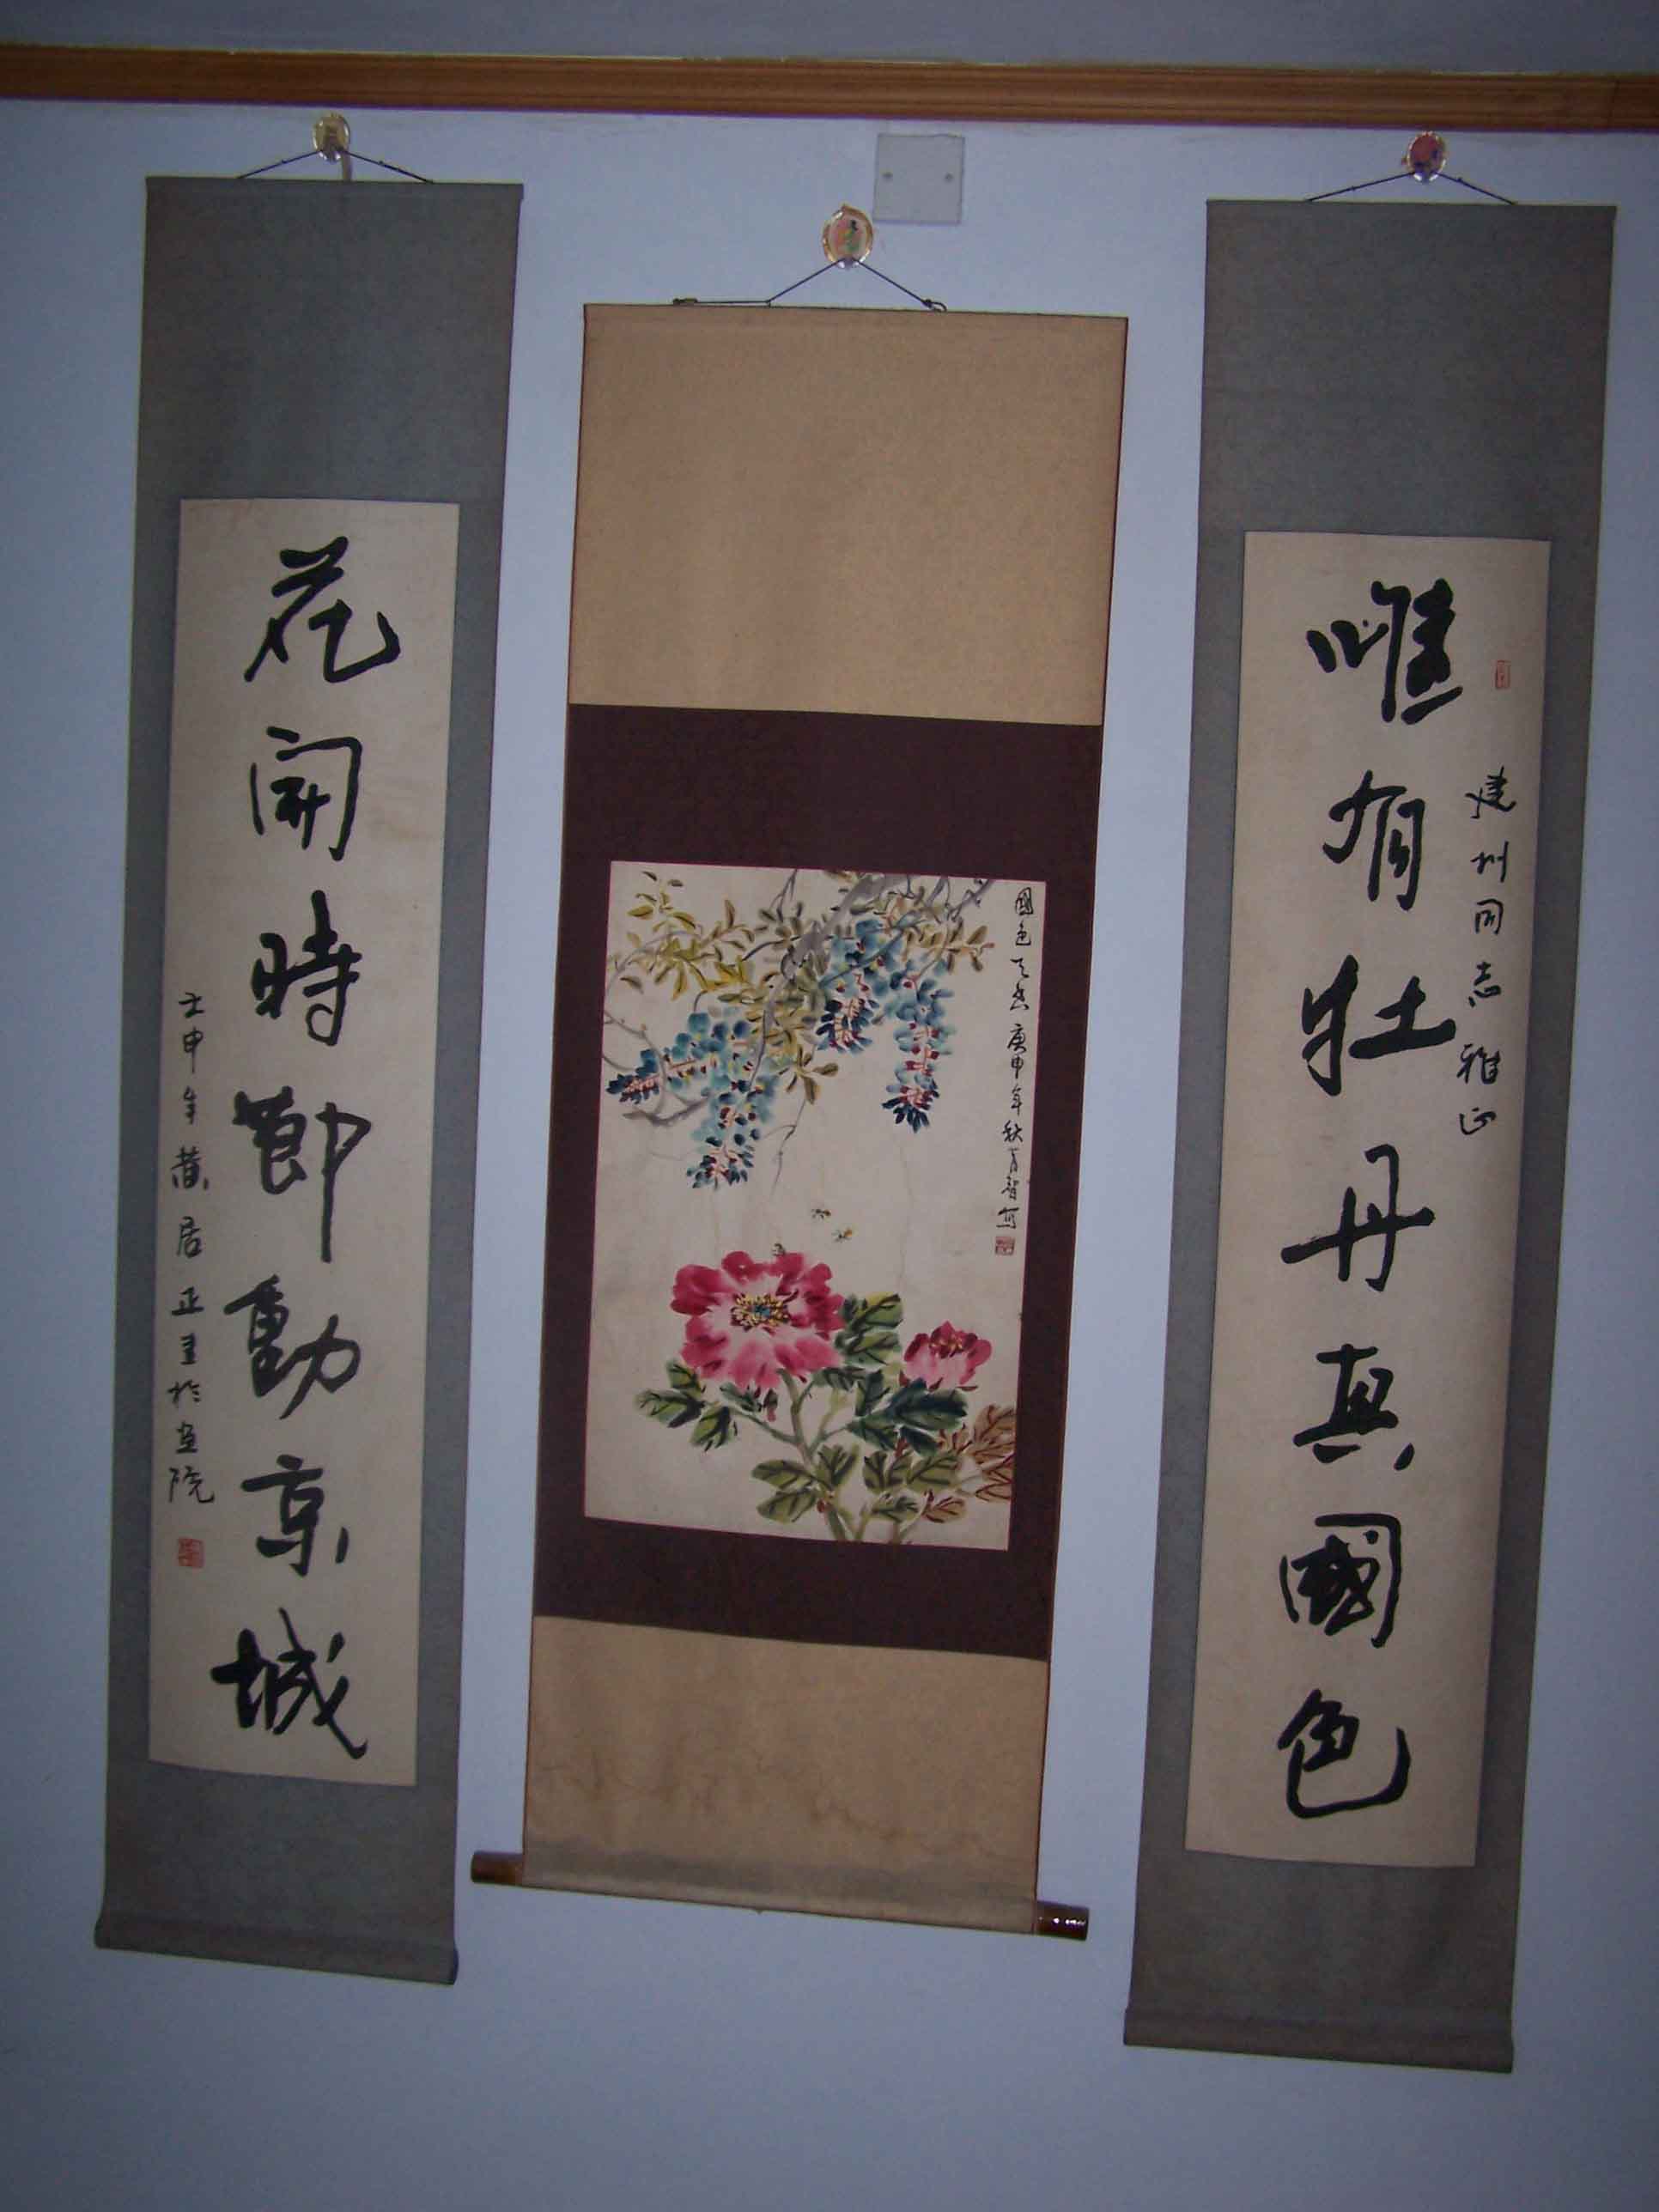 唯有牡丹真國色
建州同志雅正
國色天香 庚申年秋月智寫
花開時節動京城
壬申年黄居正書於画院